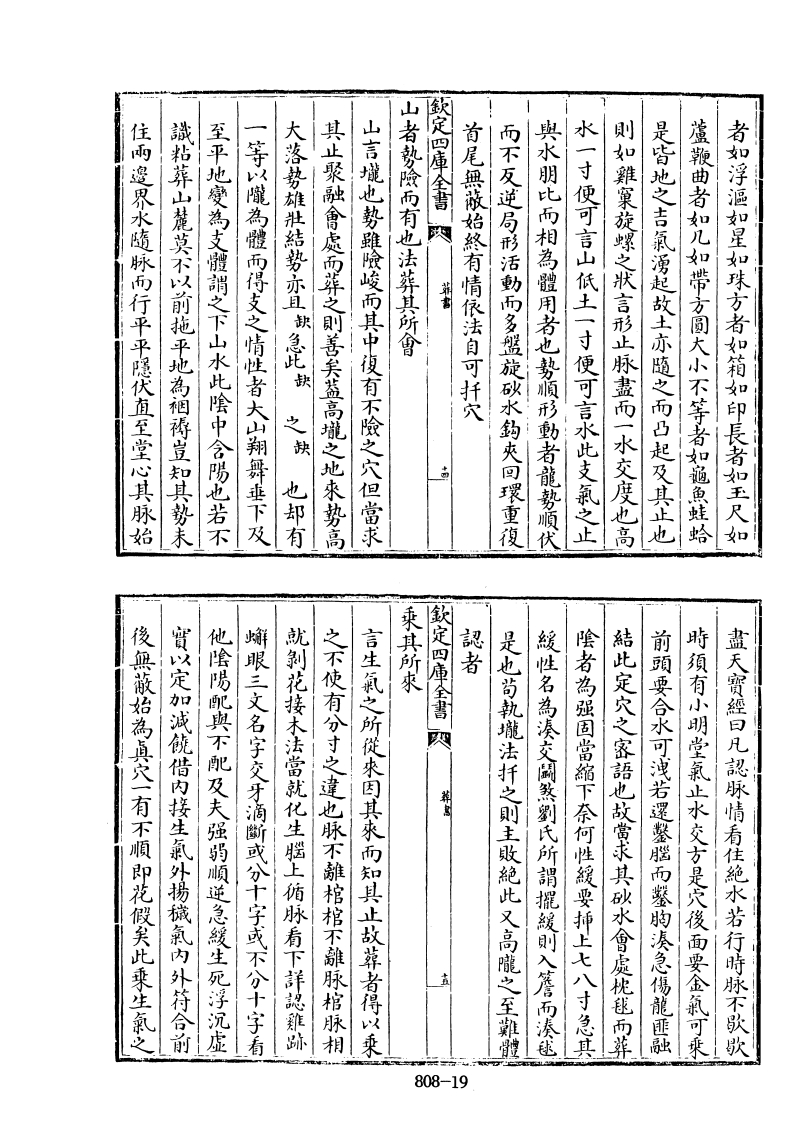 者如浮漚如星如珠方者如箱如印長者如玉尺如
蘆鞭曲者如几如帶方圓大小不等者如龜魚蛙蛤
是皆地之吉氣湧起故土亦隨之而凸起及其止也
則如雞窠旋螺之狀言形止脉盡而一水交度也高
水一寸便可言山低土一寸便可言水此支氣之止
與水朋比而相為體用者也勢順形動者龍勢順伏
而不反逆局形活動而多盤旋砂水鈎夾回環重復
首尾無蔽始終有情依法自可扦穴
欽定四庫全書
葬書
十四
山者勢險而有也法葬其所會
山言壠也勢雖險峻而其中復有不險之穴但當求
其止聚融會處而葬之則善矣葢高壠之地來勢高
大落勢雄壯結勢亦且缺急此缺之缺也却有
一等以隴為體而得支之情性者大山翔舞垂下及
至平地變為支體謂之下山水此陰中含陽也若不
識粘葬山麓莫不以前拖平地為裀褥豈知其勢未
住兩邊界水隨脉而行平平隱伏直至堂心其脉始
盡天寶經曰凡認脉情看住絶水若行時脉不歇歇
時須有小明堂氣止水交方是穴後面要金氣可乗
前頭要合水可洩若還鑿腦而鑿胸湊急傷龍匪融
結此定穴之密語也故當求其砂水會處枕毬而葬
陰者為强固當縮下奈何性緩要揷上七八寸急其
緩性名為湊交鬭煞劉氏所謂擺緩則入簷而湊毬
是也苟執壠法扦之則主敗絶此又高隴之至難體
認者
欽定四庫全書
葬書
十五
乘其所來
言生氣之所從來因其來而知其止故葬者得以乗
之不使有分寸之違也脉不離棺棺不離脉棺脉相
就剝花接木法當就化生腦上循脉看下詳認雞跡
蠏眼三文名字交牙滴斷或分十字或不分十字看
他陰陽配與不配及夫强弱順逆急緩生死浮沉虛
實以定加減饒借内接生氣外揚穢氣内外符合前
後無蔽始為眞穴一有不順即花假矣此乗生氣之
808-19